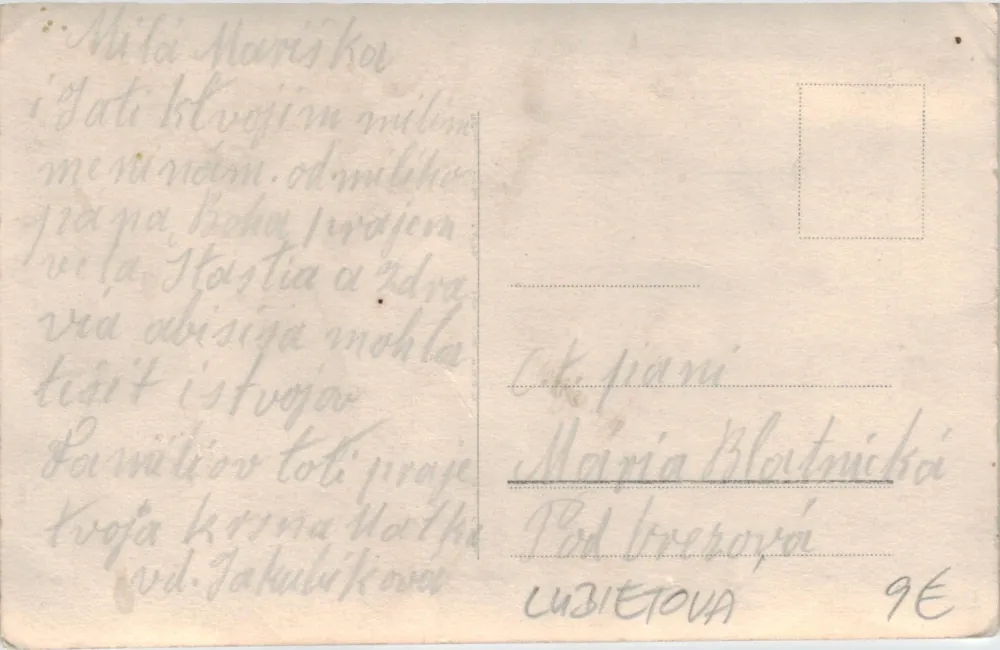 Milá Mariška
i Ja ti k tvojim milim
meninám. od miliho
pa pa, Boha prajem
vela, Stastia a zdra
via abisi sa mohla
tešit i stvojov
Familiov toti praje
tvoja krsna Matka
vd. Jakubikova
Ct. pani
Mária Blatnická
Pod brezová
LUBIETOVA 9€